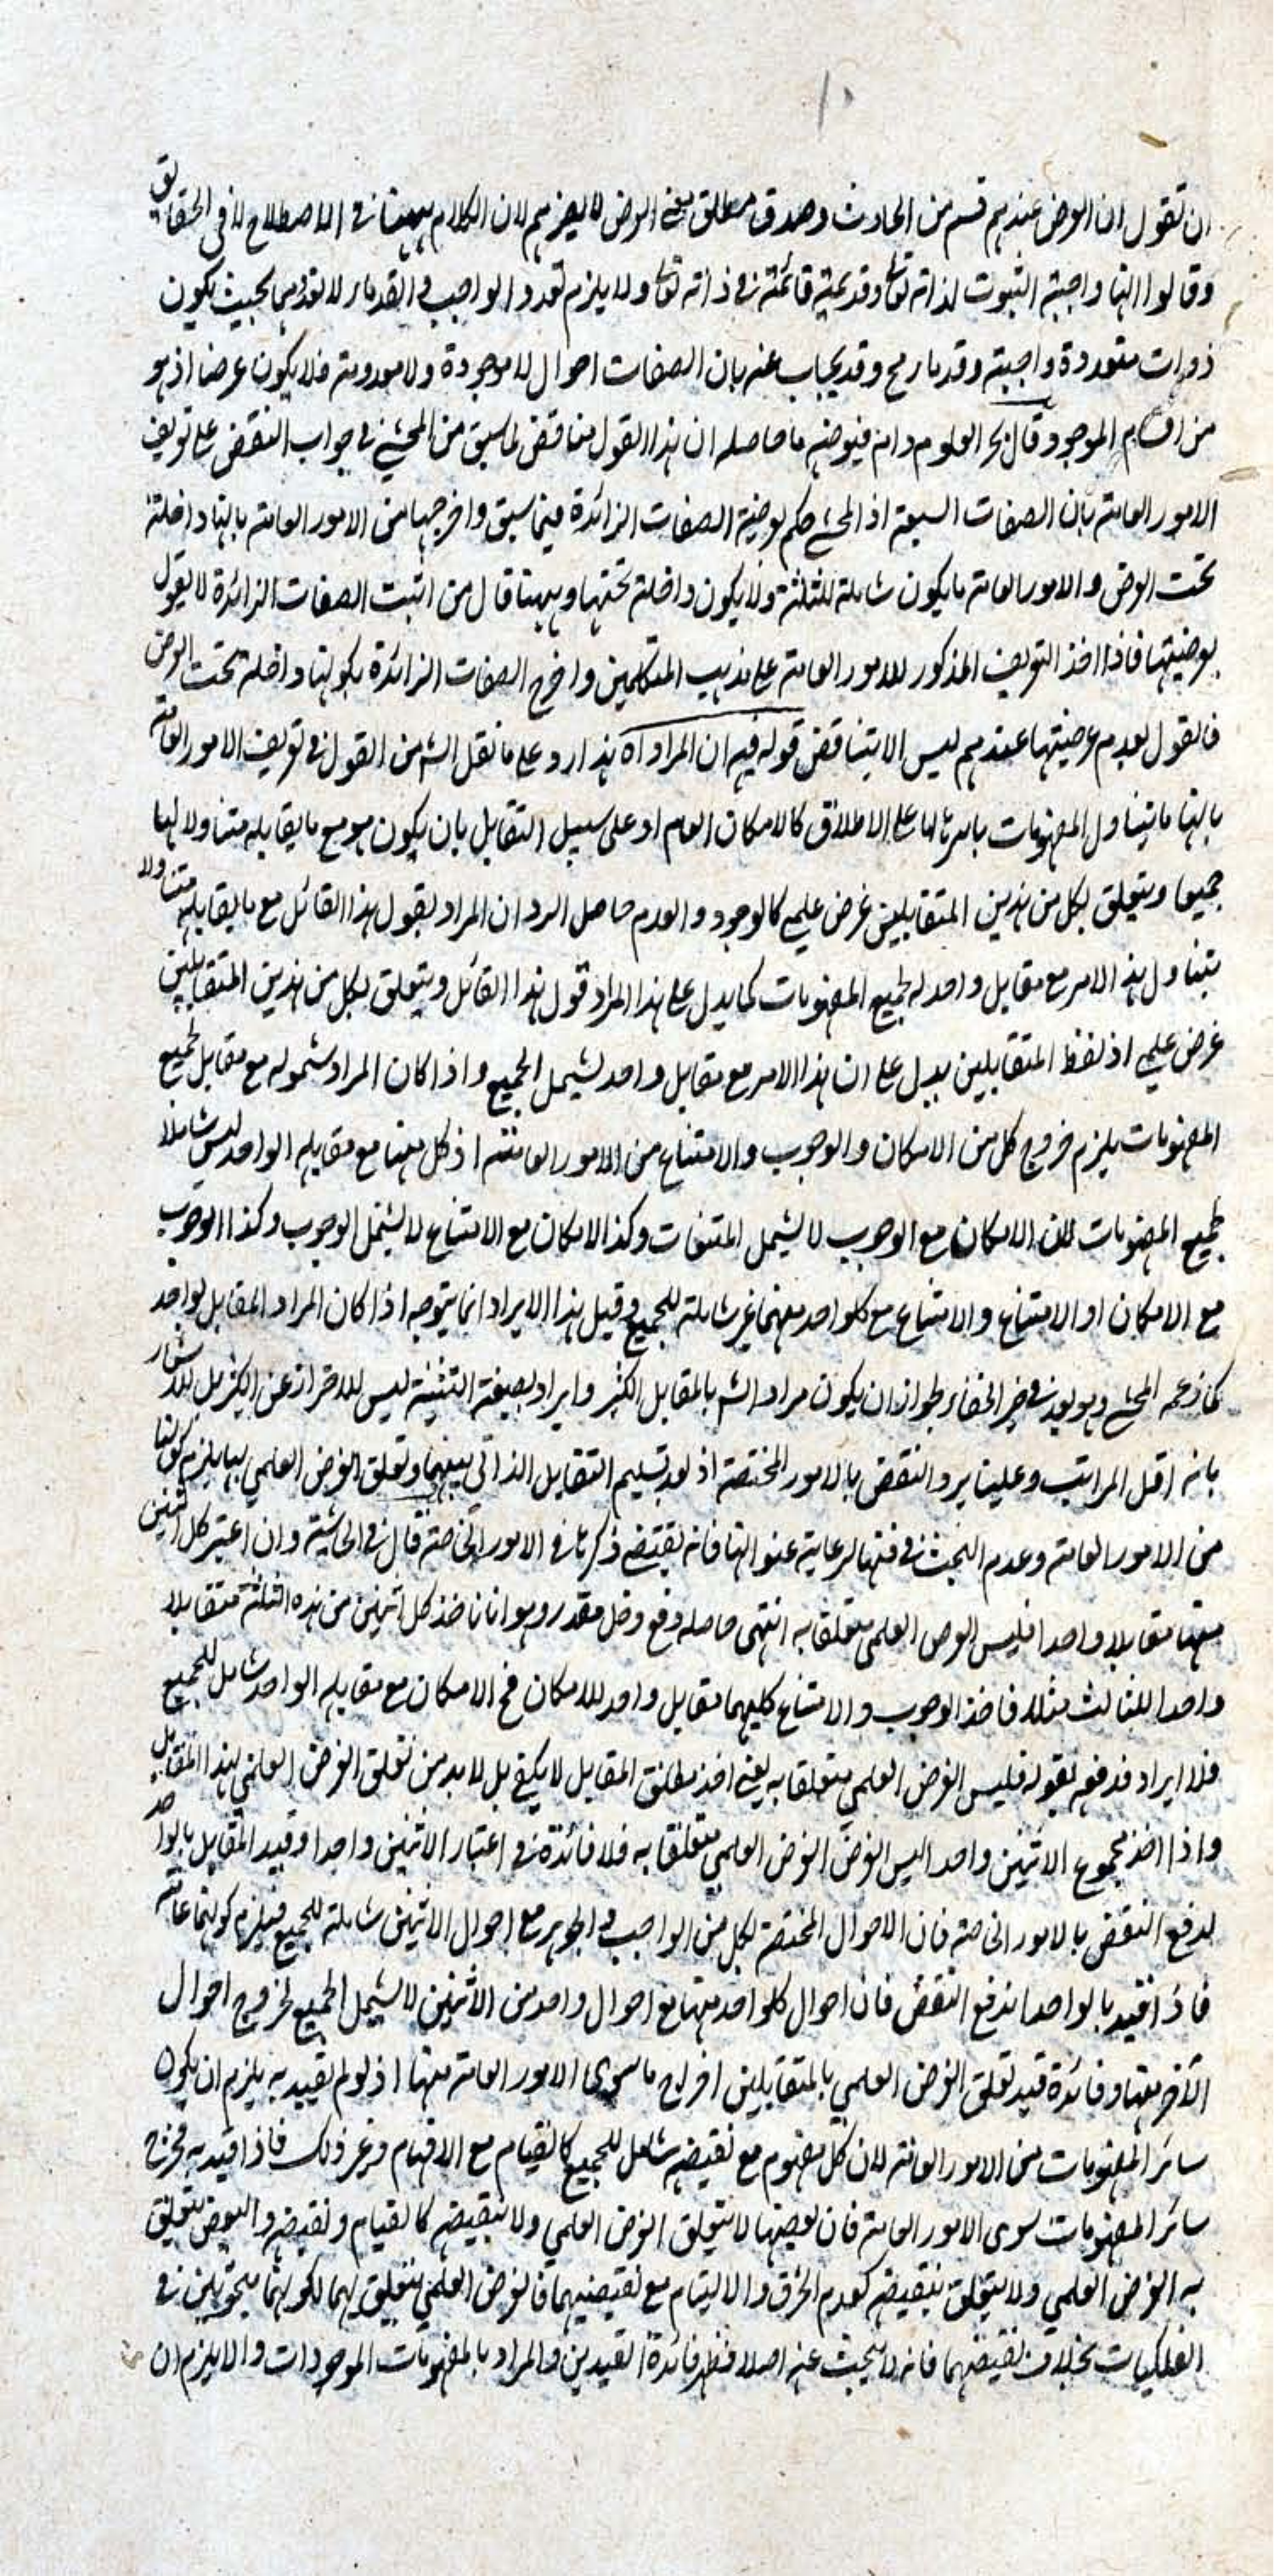 ان تقول ان العرض عندهم قسم من الحادث وصدق مطلق معنى العرض لا يضرهم لان الكلام ههنا فى الاصطلاح لا فى الحقايق
وقالوا انها واجبة الثبوت لذاته تعا وقديمة قائمة فى ذاته تعا ولا يلزم تعدد الواجب والقدماء لا تعددهما بحيث يكون
ذوات متعددة واجبة وقدماء رح وقد يجاب عنه بان الصفات احوال لا موجودة ولا معدومة فلا يكون عرضا اذ هو
من اقسام الموجود قال بحر العلوم دام فيوضه ما حاصله ان هذا القول مناقض لما سبق من المحشى فى جواب النقض على تعريف
الامور العامة بان الصفات السبعة اذ المحشى حكم بعرضية الصفات الزائدة فيما سبق واخرجها من الامور العامة بانها داخلة
تحت العرض والامور العامة ما يكون شاملة للثلثة ولا يكون داخلة تحتها وههنا قال من اثبت الصفات الزائدة لا يقول
بعرضيتها فاذا اخذ التعريف المذكور للامور العامة على مذهب المتكلمين واخرج الصفات الزائدة بكونها داخلة تحت العرض
فالقول بعدم عرضيتها عندهم ليس الا يتناقض قوله فيه ان المراد اه هذا رد على ما نقل الش من القول فى تعريف الامور العامة
بانها ما يتناول المفهومات باسرها اما على الاطلاق كالامكان العام او على سبيل التقابل بان يكون هو مع ما يقابله متناولا لها
جميعا ويتعلق بكل من هذين المتقابلين غرض علمى كالوجود والعدم حاصل الرد ان المراد بقول هذا القائل مع ما يقابله متناولا
يتناول هذا الامر مع مقابل واحد له لجميع المفهومات كما يدل على هذا المراد قول هذا القائل ويتعلق بكل من هذين المتقابلين
غرض علمى اذ لفظ المتقابلين يدل على ان هذا الامر مع مقابل واحد يشمل الجميع واذا كان المراد شموله مع مقابل لجميع
المفهومات يلزم خروج كل من الامكان والوجوب والامتناع من الامور العامة اذ كل منها مع مقابله الواحد ليس شاملا
لجميع المفهومات لان الامكان مع الوجوب لا يشمل الممتنعات وكذا الامكان مع الامتناع لا يشمل الوجوب وكذا الوجوب
مع الامكان او الامتناع والامتناع مع كلواحد منهما غير شاملة للجميع وقيل هذا الايراد انما يتوجه اذا كان المراد المقابل لواحد
كما زعمه المحشى وهو بعد فى حيز الخفاء لجواز ان يكون مراد الش بالمقابل الكثير وايراد بصيغة التثنية ليس للاحتراز عن الكثير بل للاشعار
بانه اقل المراتب وعلينا يرد النقض بالامور المختصة اذ بعد تسليم التقابل الذاتى بينهما وتعلق الغرض العلمى بها يلزم كونها
من الامور العامة وعدم البحث فى فنها لرعاية عنوانها فانه يقتضى ذكرها فى الامور الخاصة قال فى الحاشية وان اعتبر كل اثنين
منها مقابلا واحدا فليس الغرض العلمى متعلقا به انتهى حاصله دفع دخل مقدر وهو انا ناخذ كل اثنين من هذه الثلثة متقابلا
واحدا للثالث مثلا فاخذ الوجوب والامتناع كليهما مقابل واحد للامكان فح الامكان مع مقابله الواحد شامل للجميع
فلا ايراد فدفعه بقوله فليس الغرض العلمى متعلقا به يعنى اخذ مطلق المقابل لا يكفى بل لا بد من تعلق الغرض العلمى بهذا المقابل
واذا اخذ مجموع الاثنين واحدا ليس الغرض الغرض العلمى متعلقا به فلا فائدة فى اعتبار الاثنين واحدا وقيد المقابل بالواحد
لدفع النقض بالامور الخاصة فان الاحوال المختصة لكل من الواجب والجوهر مع احوال الاثنين شاملة للجميع فيلزم كونها عامة
فاذا قيد بالواحد اندفع النقض فان احوال كلواحد منها مع احوال واحد من الاثنين لا يشمل الجميع لخروج احوال
الآخر منها وفائدة قيد تعلق الغرض العلمى بالمتقابلين اخراج ما سوى الامور العامة منها اذ لو لم تقييد به يلزم ان يكون
سائر المفهومات من الامور العامة لان كل مفهوم مع نقيضه شامل للجميع كالقيام مع الاقيام وغير ذلك فاذا قيد به فخرج
سائر المفهومات سوى الامور العامة فان بعضها لا يتعلق الغرض العلمى ولا بنقيضه كالقيام ونقيضه والبعض يتعلق
به الغرض العلمى ولا يتعلق بنقيضه كعدم الخرق والالتيام مع نقيضيهما فالغرض العلمى يتعلق بهما لكونهما مبحوثين فى
الفلكيات بخلاف نقيضهما فانه لا يبحث عنه اصلا فظهر فائدة القيدين والمراد بالمفهومات الموجودات والا يلزم ان